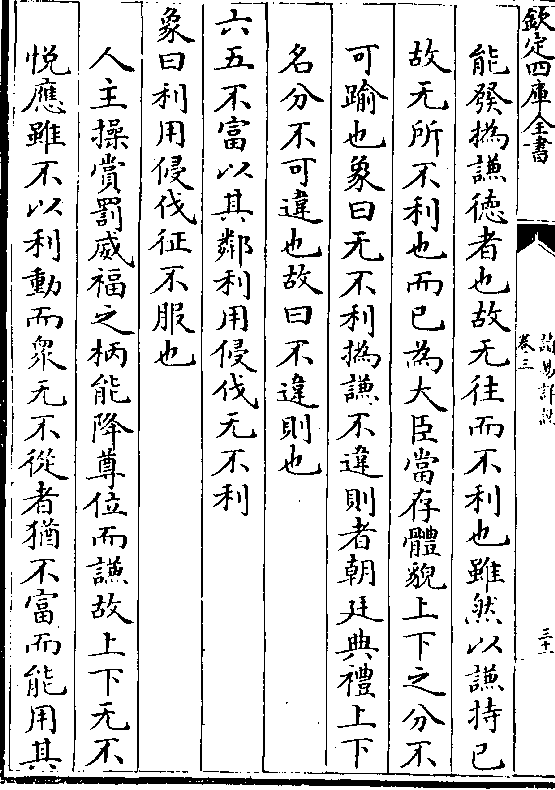 欽定四庫全書
讀易詳說
卷三
三十一
能發撝謙德者也故无往而不利也雖然以謙持已
故无所不利也而已為大臣當存體貌上下之分不
可踰也象曰无不利撝謙不違則者朝廷典禮上下
名分不可違也故曰不違則也
六五不富以其鄰利用侵伐无不利
象曰利用侵伐征不服也
人主操賞罰威福之柄能降尊位而謙故上下无不
悅應雖不以利動而衆无不從者猶不富而能用其